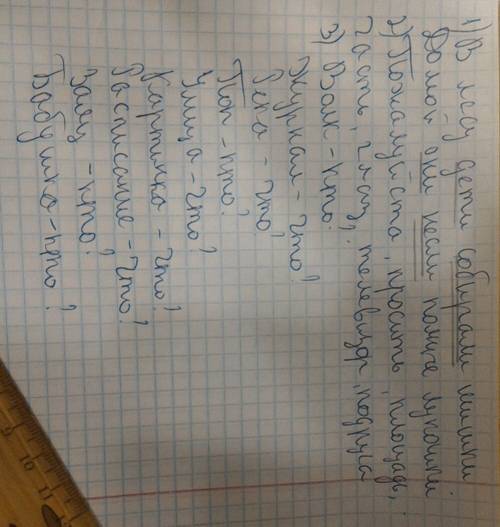 1) В лесу дети собирали шишки
Домой они несли полные лукошки
2) Пожалуйста, просить, площадь,
часть, глаз, телевизор, подруга
3) Волк - кто?
Журнал - что?
Репа - что?
Поп - кто?
Улица - что?
Картинка - что?
Расписание - что?
Заяц - кто?
Бабушка - кто?
9 10 11